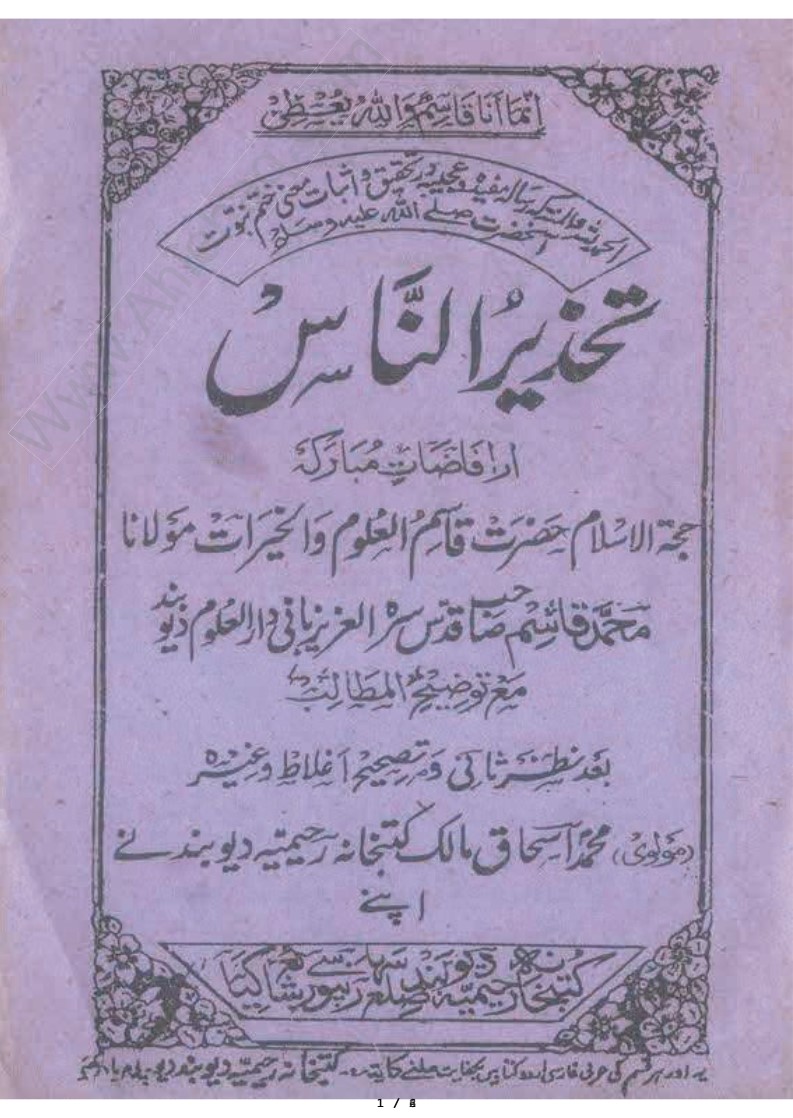 اِنَّمَا اَنَا قَاسِمٌ وَاللّٰهُ يُعْطِىْ
الحمد للہ والمنۃ کہ رسالہ مفیدہ و عجیبہ در تحقیق و اثبات معنی ختم نبوّت
آنحضرت صلے اللہ علیہ وسلم
تحذیرُ النَّاسْ
از افاضاتِ مُبارکہ
حجۃ الاسلام حضرت قاسم العلوم والخیرات مولانا
محمد قاسم صاحب قدس سرہ العزیز بانی دارالعلوم دیوبند
مع توضیح المطالب
بعد نظر ثانی و تصحیح اغلاط وغیرہ
(مولوی) محمد اسحاق مالک کتبخانہ رحیمیہ دیوبند نے
اپنے
کتبخانہ رحیمیہ دیوبند ضلع سہارنپور سے شائع کیا
یہ اور ہر قسم کی عربی فارسی اردو کتابیں بکفایت ملنے کا پتہ:۔ کتبخانہ رحیمیہ دیوبند
1 /